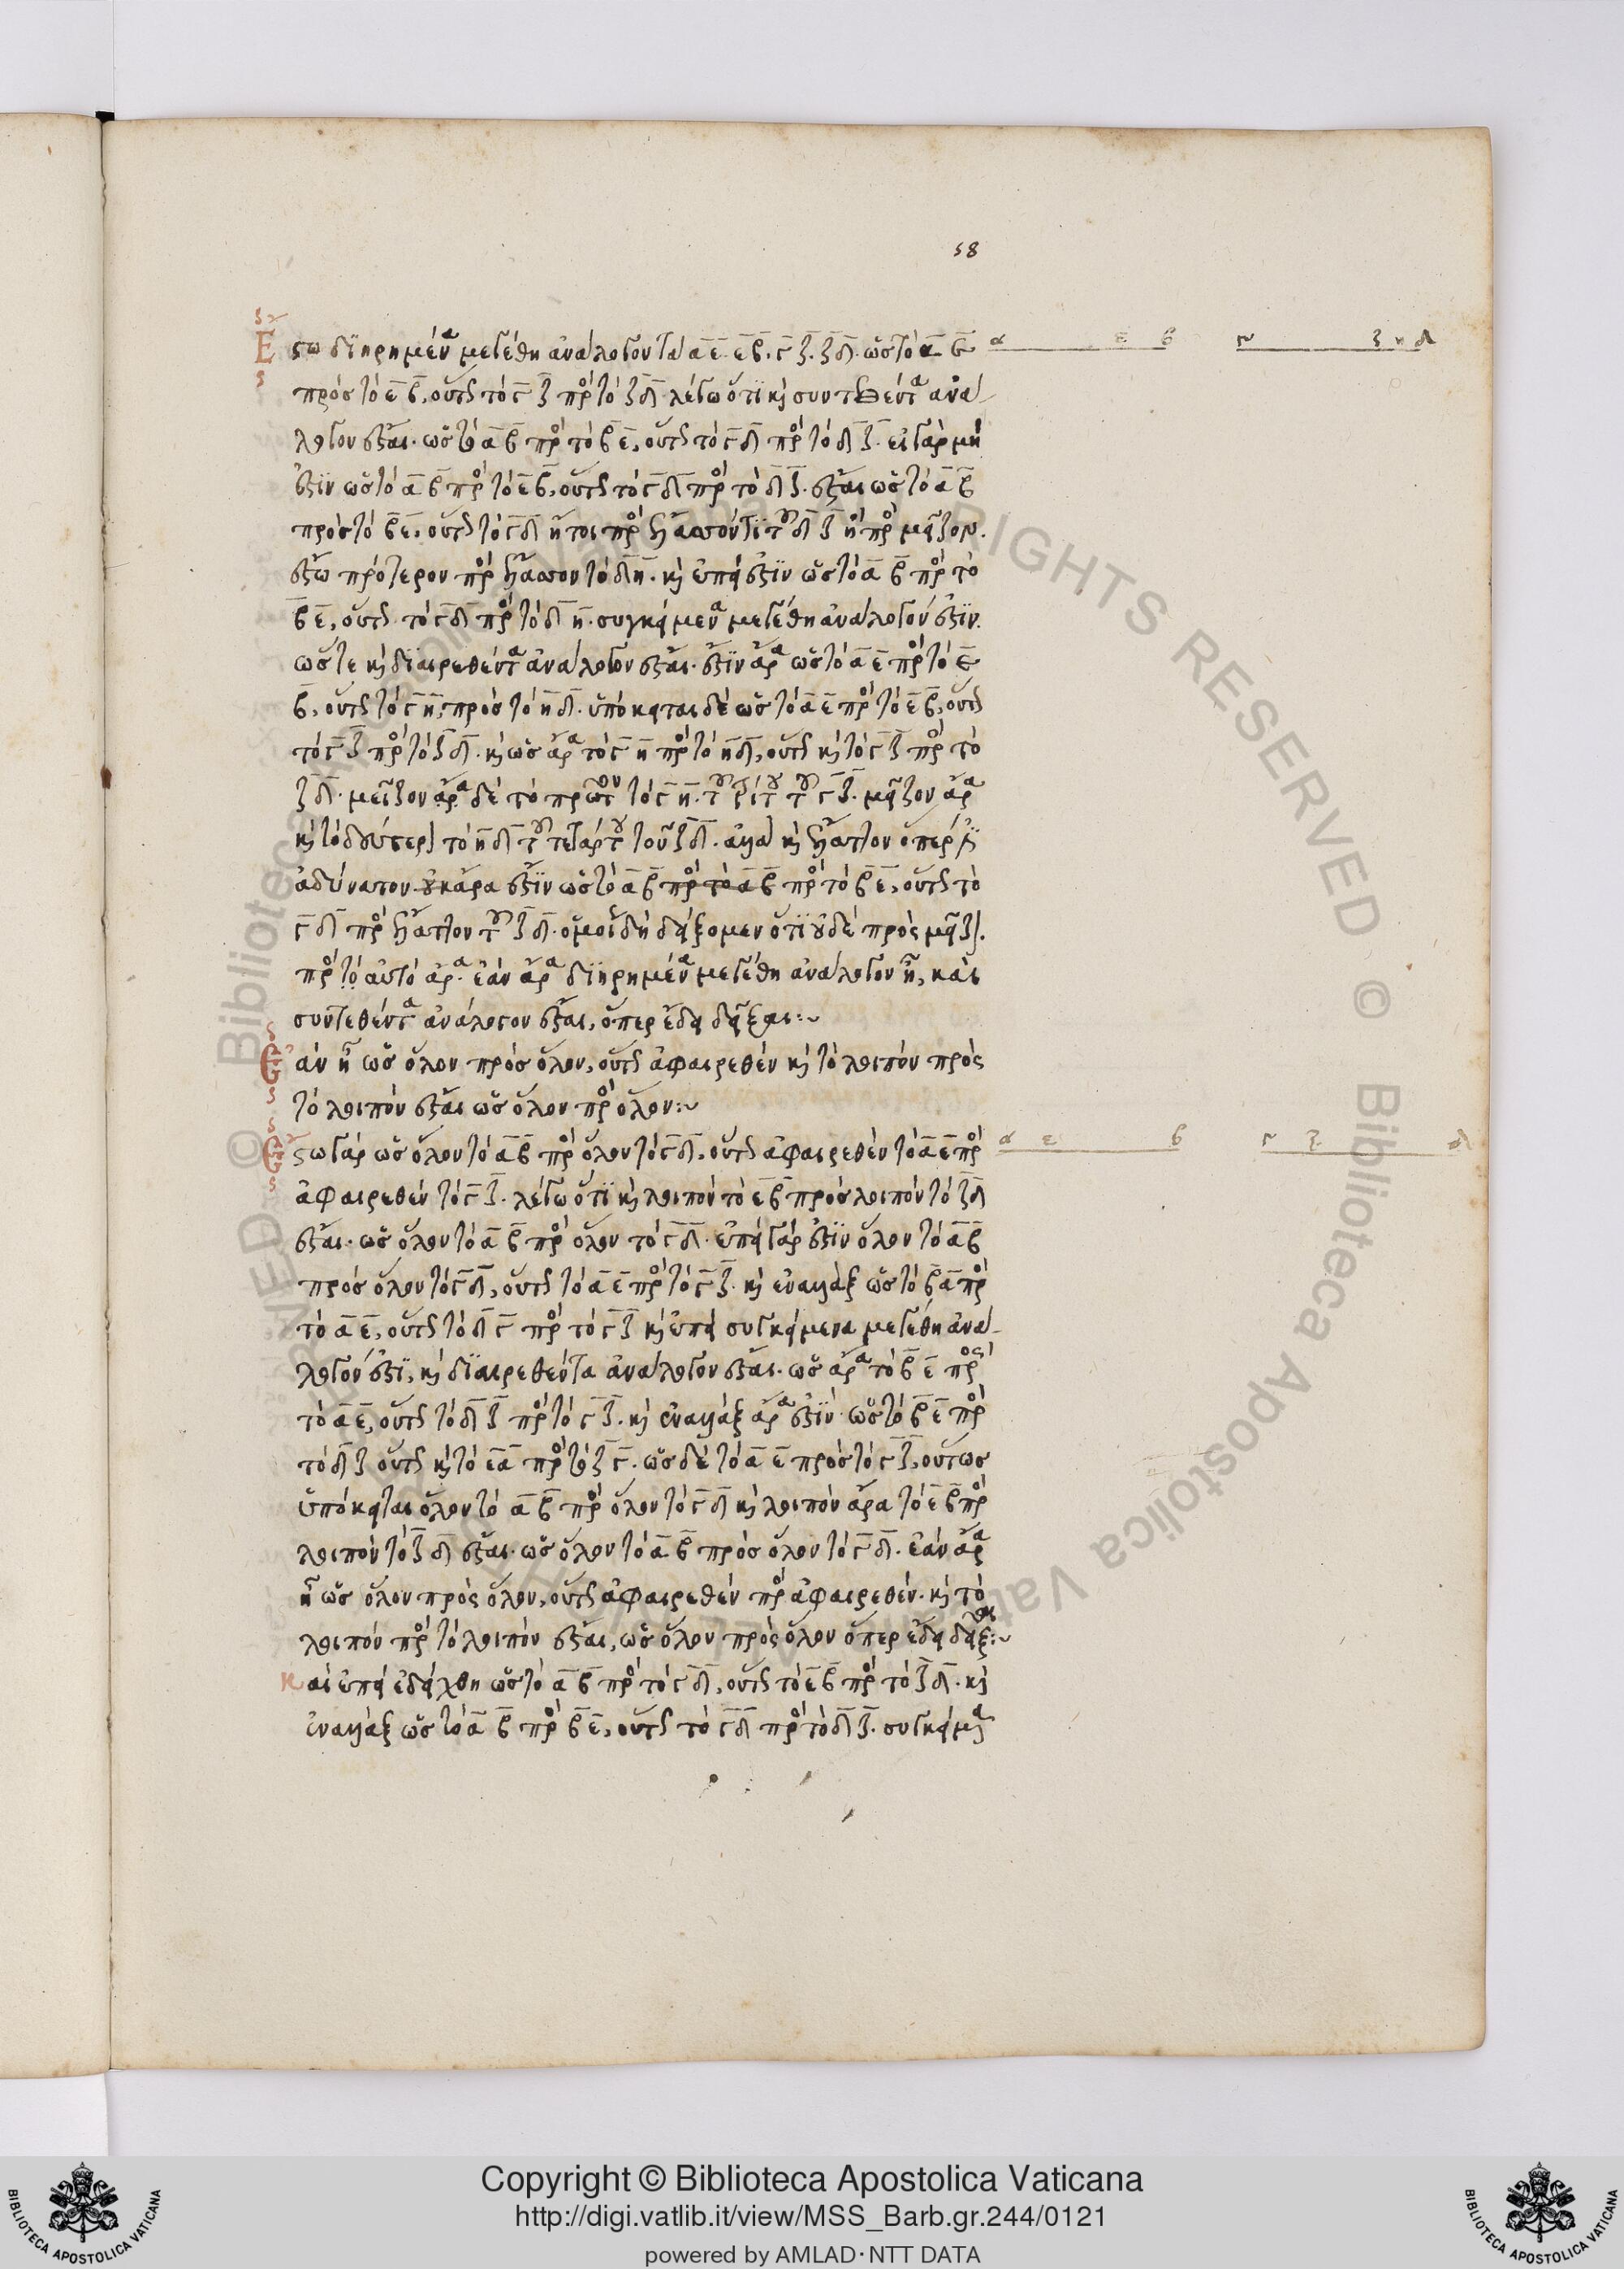 58
Ἔστω διηρημένα μεγέθη ἀνάλογον τὰ α ε. ε β. γ ζ. ζ δ. ὡς τὸ α ε
πρὸς τὸ ε β, οὕτως τὸ γ ζ πρὸς τὸ ζ δ. λέγω ὅτι καὶ συντεθέντα ἀνά-
λογον ἔσται. ὡς τὸ α β πρὸς τὸ β ε, οὕτως τὸ γ δ πρὸς τὸ δ ζ. εἰ γὰρ μή
ἐστιν ὡς τὸ α β πρὸς τὸ ε β, οὕτως τὸ γ δ πρὸς τὸ δ ζ. ἔσται ὡς τὸ α β
πρὸς τὸ β ε, οὕτως τὸ γ δ ἤτοι πρὸς ἔλασσόν τι τοῦ δ ζ ἢ πρὸς μεῖζον.
ἔστω πρότερον πρὸς ἔλασσον τὸ δ η. καὶ ἐπεί ἐστιν ὡς τὸ α β πρὸς τὸ
β ε, οὕτως τὸ γ δ πρὸς τὸ δ η. συγκείμενα μεγέθη ἀνάλογόν ἐστιν.
ὥστε καὶ διαιρεθέντα ἀνάλογον ἔσται. ἔστιν ἄρα ὡς τὸ α ε πρὸς τὸ ε
β, οὕτως τὸ γ η πρὸς τὸ η δ. ὑπόκειται δὲ ὡς τὸ α ε πρὸς τὸ ε β, οὕτως
τὸ γ ζ πρὸς τὸ ζ δ. καὶ ὡς ἄρα τὸ γ η πρὸς τὸ η δ, οὕτως καὶ τὸ γ ζ πρὸς τὸ
ζ δ. μεῖζον ἄρα δὲ τὸ πρῶτον τὸ γ η. τοῦ τρίτου τοῦ γ ζ. μεῖζον ἄρα
καὶ τὸ δεύτερον τὸ η δ τοῦ τετάρτου τοῦ ζ δ. ἀλλὰ καὶ ἔλαττον ὅπερ ἐστὶ
ἀδύνατον οὐκ ἄρα ἐστὶν ὡς τὸ α β πρὸς τὸ α β πρὸς τὸ β ε, οὕτως τὸ
γ δ πρὸς ἔλαττον τοῦ ζ δ. ὁμοίως δὴ δείξομεν ὅτι οὐδὲ πρὸς μεῖζον.
πρὸς τὸ αὐτὸ ἄρα. ἐὰν ἄρα διηρημένα μεγέθη ἀνάλογον ᾖ, καὶ
συντεθέντα ἀνάλογον ἔσται, ὅπερ ἔδει δεῖξαι:~
Ἐὰν ᾖ ὡς ὅλον πρὸς ὅλον, οὕτως ἀφαιρεθὲν καὶ τὸ λοιπὸν πρὸς
τὸ λοιπὸν ἔσται ὡς ὅλον πρὸς ὅλον:~
Ἔστω γὰρ ὡς ὅλον τὸ α β πρὸς ὅλον τὸ γ δ, οὕτως ἀφαιρεθὲν τὸ α ε πρὸς
ἀφαιρεθὲν τὸ γ ζ. λέγω ὅτι καὶ λοιπὸν τὸ ε β πρὸς λοιπὸν τὸ ζ δ
ἔσται. ὡς ὅλον τὸ α β πρὸς ὅλον τὸ γ δ. ἐπεὶ γάρ ἐστιν ὅλον τὸ α β
πρὸς ὅλον τὸ γ δ, οὕτως τὸ α ε πρὸς τὸ γ ζ. καὶ ἐναλλὰξ ὡς τὸ β α πρὸς
τὸ α ε, οὕτως τὸ δ γ πρὸς τὸ γ ζ καὶ ἐπεὶ συγκείμενα μεγέθη ἀνά-
λογόν ἐστι, καὶ διαιρεθέντα ἀνάλογον ἔσται. ὡς ἄρα τὸ β ε πρὸς
τὸ α ε, οὕτως τὸ δ ζ πρὸς τὸ γ ζ. καὶ ἐναλλὰξ ἄρα ἐστὶν. ὡς τὸ β ε πρὸς
τὸ δ ζ οὕτως καὶ τὸ ε α πρὸς τὸ ζ γ. ὡς δὲ τὸ α ε πρὸς τὸ γ ζ, οὕτως
ὑπόκειται ὅλον τὸ α β πρὸς ὅλον τὸ γ δ καὶ λοιπὸν ἄρα τὸ ε β πρὸς
λοιπὸν τὸ ζ δ ἔσται. ὡς ὅλον τὸ α β πρὸς ὅλον τὸ γ δ. ἐὰν ἄρα
ᾖ ὡς ὅλον πρὸς ὅλον, οὕτως ἀφαιρεθὲν πρὸς ἀφαιρεθέν. καὶ τὸ
λοιπὸν πρὸς τὸ λοιπὸν ἔσται, ὡς ὅλον πρὸς ὅλον ὅπερ ἔδει δεῖξαι:~
Καὶ ἐπεὶ ἐδείχθη ὡς τὸ α β πρὸς τὸ γ δ, οὕτως τὸ ε β πρὸς τὸ ζ δ. καὶ
ἐναλλὰξ ὡς τὸ α β πρὸς β ε, οὕτως τὸ γ δ πρὸς τὸ δ ζ. συγκείμενα
α ε β γ ζ η δ
α ε β γ ζ δ
Copyright © Biblioteca Apostolica Vaticana
http://digi.vatlib.it/view/MSS_Barb.gr.244/0121
powered by AMLAD·NTT DATA